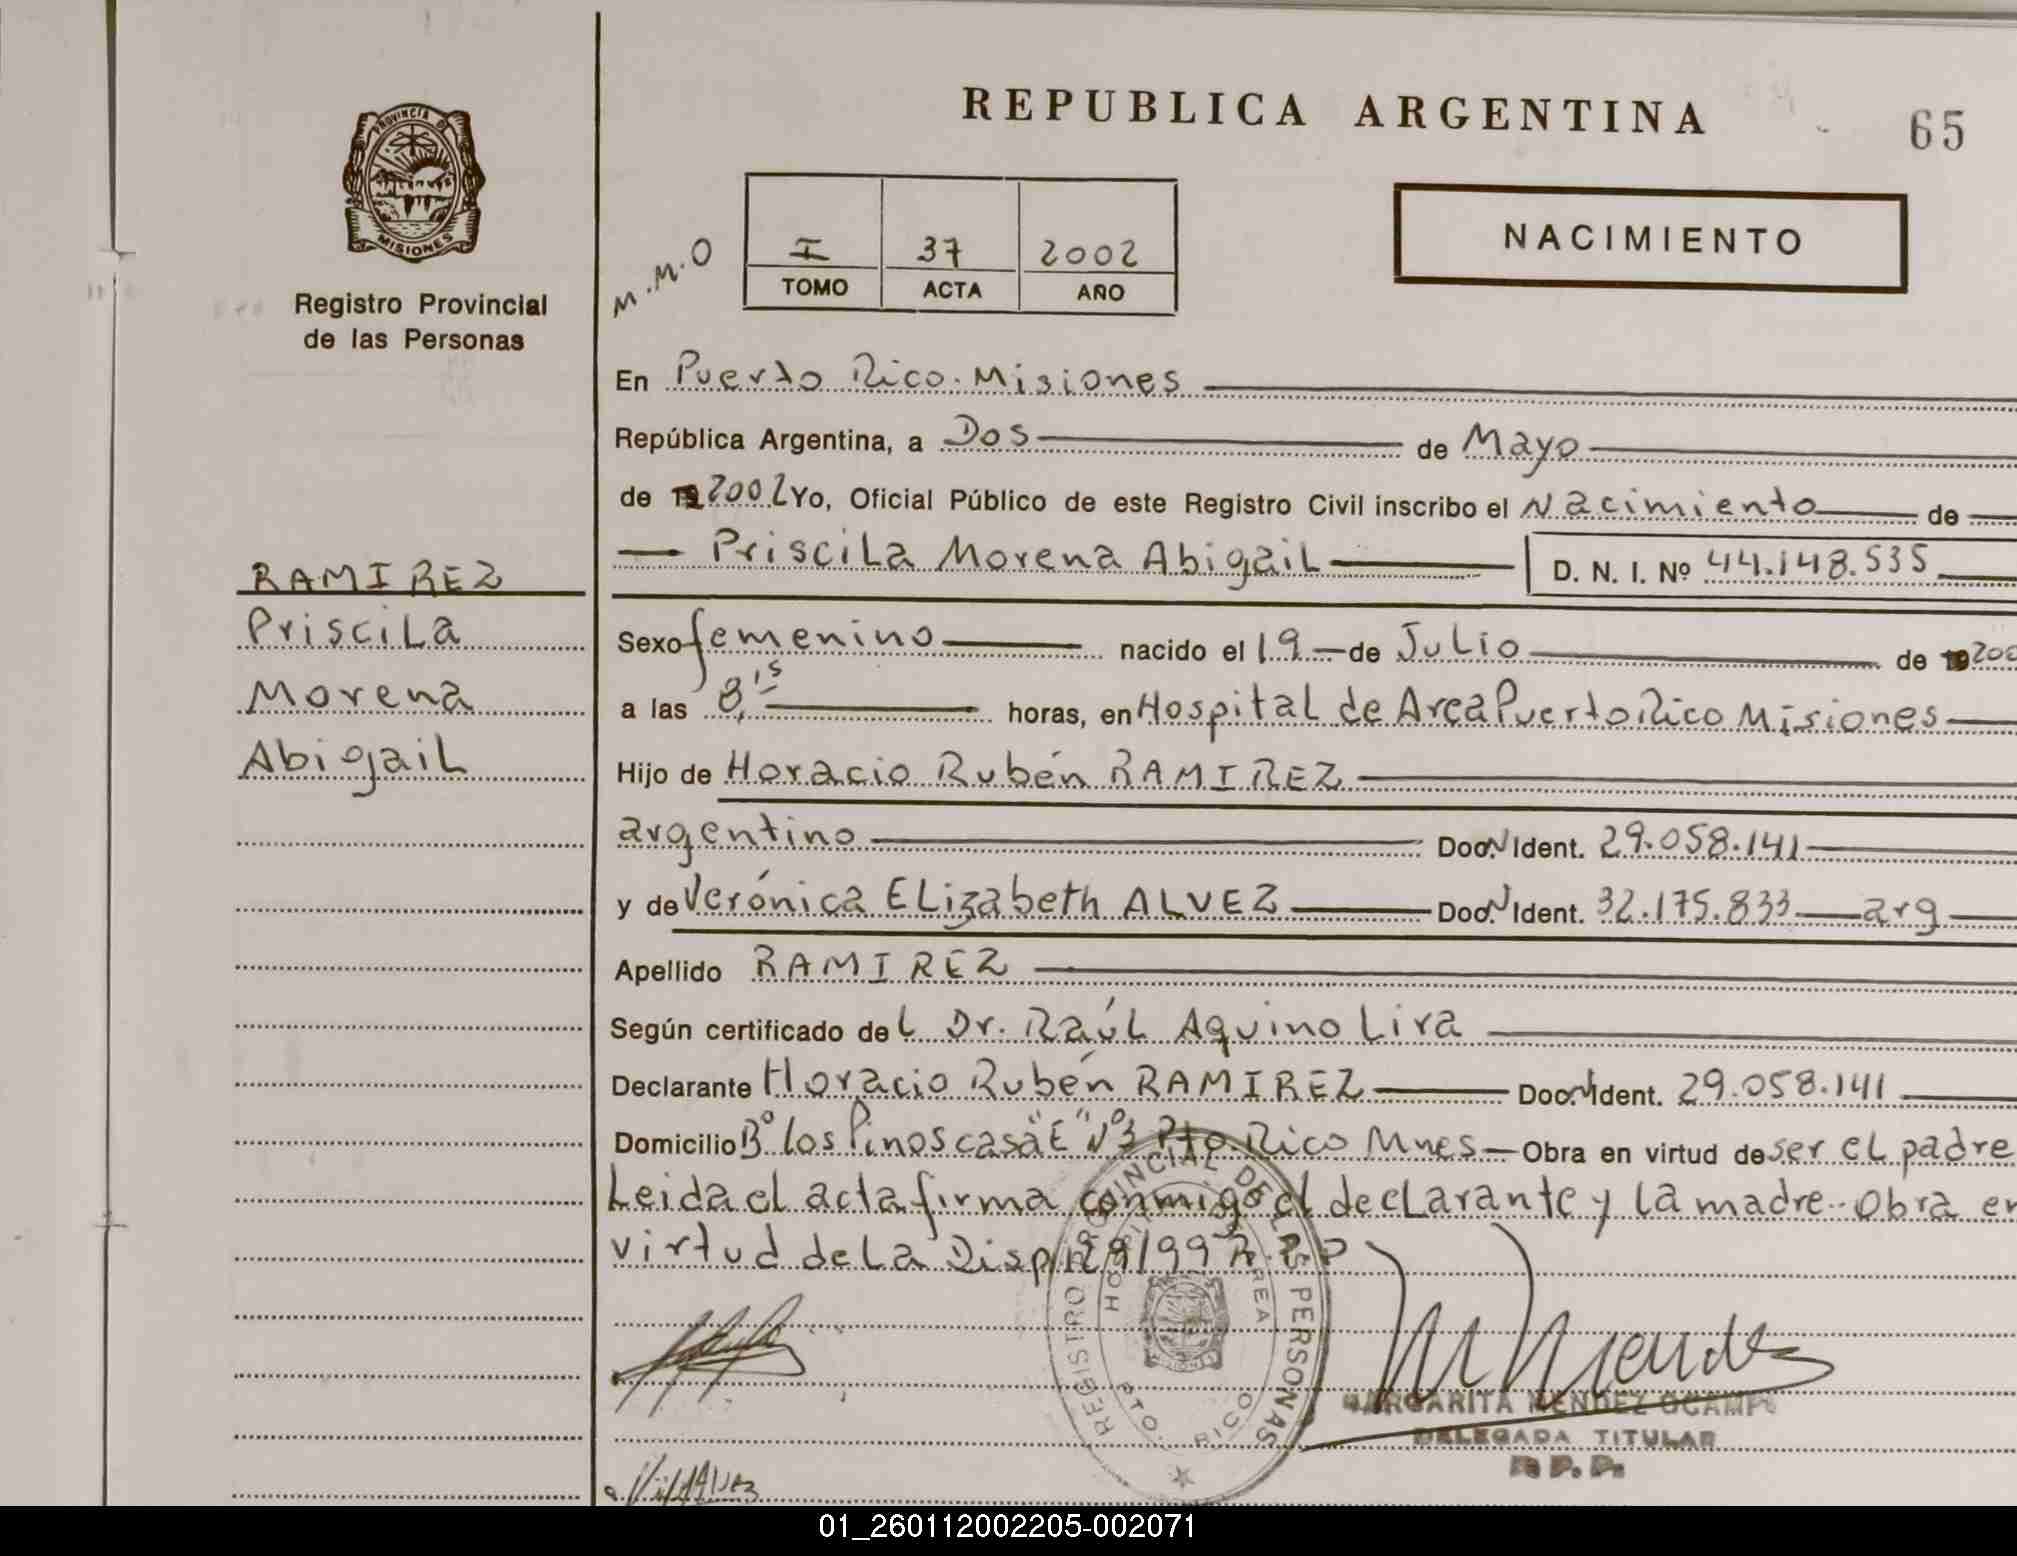 PROVINCIA DE
MISIONES
Registro Provincial
de las Personas
REPUBLICA ARGENTINA
65
M.M.O
I 37 2002
TOMO ACTA AÑO
NACIMIENTO
En Puerto Rico. Misiones
República Argentina, a Dos de Mayo
de 2002 Yo, Oficial Público de este Registro Civil inscribo el Nacimiento de
Priscila Morena Abigail D. N. I. Nº 44.148.535
RAMIREZ
Priscila
Morena
Abigail
Sexo femenino nacido el 19 de Julio de 19 200
a las 8,15 horas, en Hospital de Area Puerto Rico Misiones
Hijo de Horacio Rubén RAMIREZ
argentino Doc.N Ident. 29.058.141
y de Verónica Elizabeth ALVEZ Doc.N Ident. 32.175.833 arg
Apellido RAMIREZ
Según certificado del Dr. Raúl Aquino Lira
Declarante Horacio Rubén RAMIREZ Doc.N Ident. 29.058.141
Domicilio Bº los Pinos casa "E" Nº3 Pto Rico Mnes Obra en virtud de ser el padre
Leida el acta firma conmigo el declarante y la madre.. Obra en
virtud de la Disp 129/99 R.P.P
REGISTRO PROVINCIAL DE LAS PERSONAS
HOSPITAL AREA
PTO. RICO
MARGARITA MENDEZ OCAMPO
DELEGADA TITULAR
R.P.P.
01_260112002205-002071